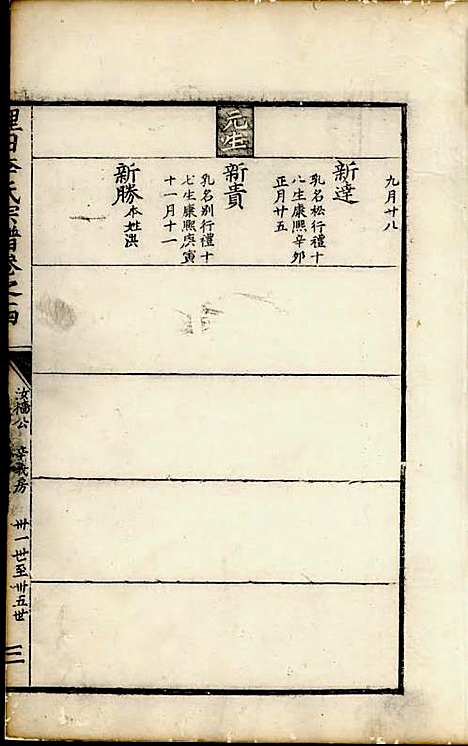 元生
九月廿八
新達
乳名松行禮十
八生康熙辛卯
正月廿五
新貴
乳名別行禮十
七生康熙庚寅
十一月十一
新勝
本姓洪
田李氏宗譜卷之四
汝檣公
房
卅一世至卅五世
三